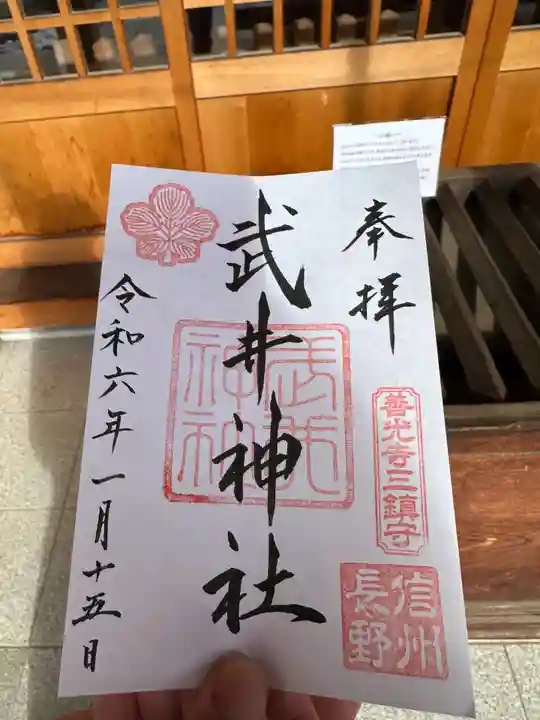 奉拝
善光寺三鎮守
信州
長野
武井神社
武井
神社
令和六年一月十五日